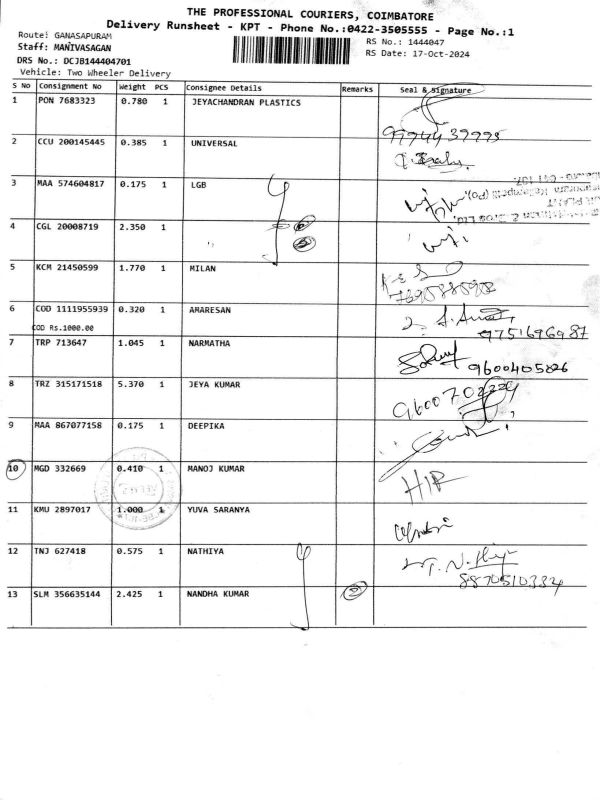 THE PROFESSIONAL COURIERS, COIMBATORE
Delivery Runsheet - KPT - Phone No.:0422-3505555 - Page No.:1
Route: GANASAPURAM
Staff: MANIVASAGAN
RS No.: 1444047
DRS No.: DCJB144404701
RS Date: 17-Oct-2024
Vehicle: Two Wheeler Delivery
S No Consignment No Weight PCS Consignee Details Remarks Seal & Signature
1 PON 7683323 0.780 1 JEYACHANDRAN PLASTICS
2 CCU 200145445 0.385 1 UNIVERSAL
3 MAA 574604817 0.175 1 LGB
4 CGL 20008719 2.350 1
5 KCM 21450599 1.770 1 MILAN
6 COD 1111955939 0.320 1 AMARESAN
COD Rs.1000.00
9751696987
7 TRP 713647 1.045 1 NARMATHA
9600405826
8 TRZ 315171518 5.370 1 JEYA KUMAR
9 MAA 867077158 0.175 1 DEEPIKA
10 MGD 332669 0.410 1 MANOJ KUMAR
11 KMU 2897017 1.000 1 YUVA SARANYA
12 TNJ 627418 0.575 1 NATHIYA
8870510334
13 SLM 356635144 2.425 1 NANDHA KUMAR